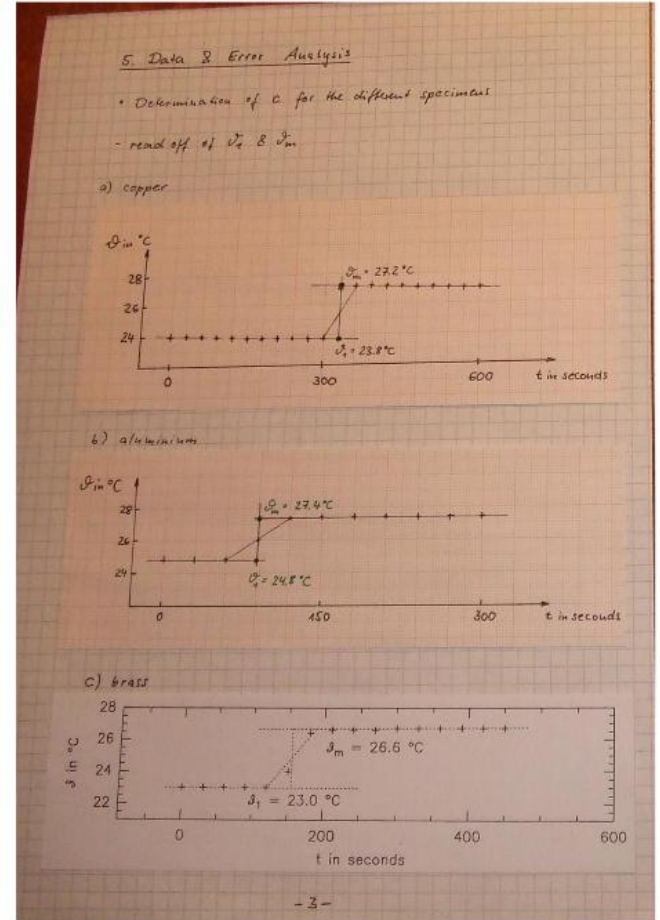 5. Data & Error Analysis
• Determination of c for the different specimens
- read off of ϑ₁ & ϑₘ
a) copper
ϑ in °C
28
26
24
ϑₘ = 27.2°C
ϑ₁ = 23.8°C
0 300 600 t in seconds
b) aluminium
ϑ in °C
28
26
24
ϑₘ = 27.4°C
ϑ₁ = 24.8°C
0 150 300 t in seconds
c) brass
ϑ in °C
28
26
24
22
ϑₘ = 26.6 °C
ϑ₁ = 23.0 °C
0 200 400 600
t in seconds
- 3 -